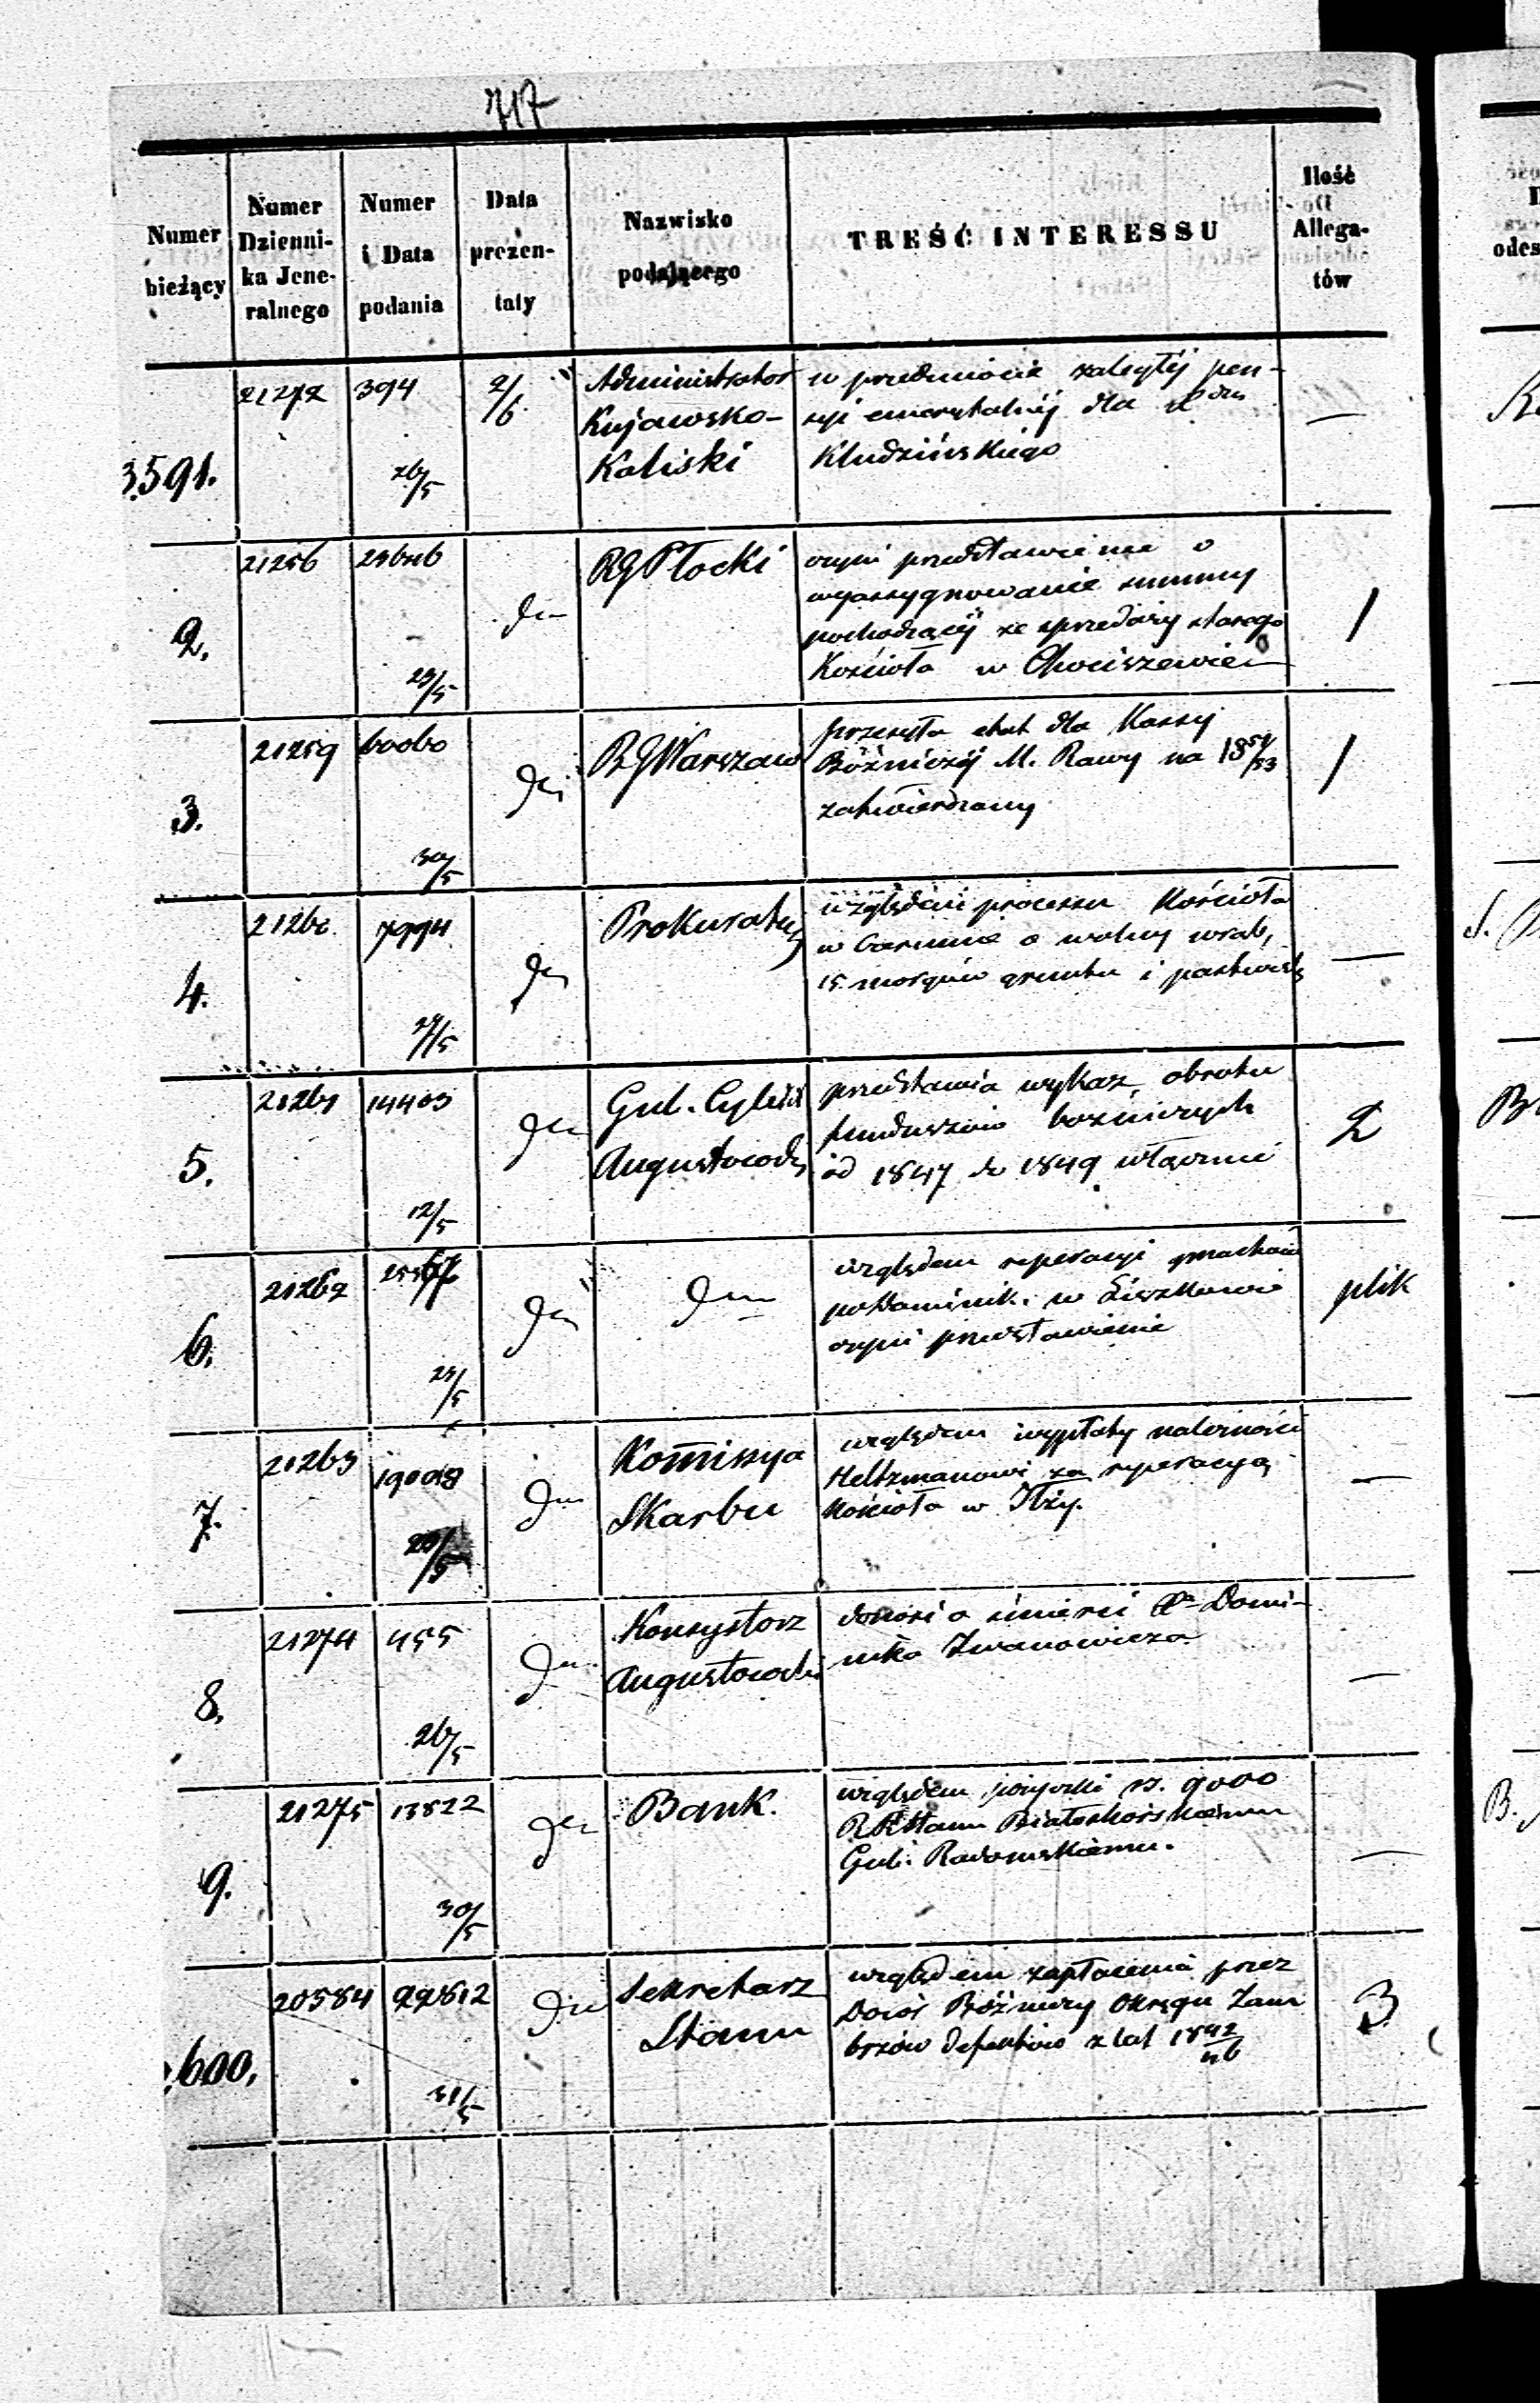 717
Numer bieżący
Numer Dzienni- ka Jene- ralnego
Numer i Data podania
Data prezen- taty
Nazwisko podającego
TREŚĆ INTERESSU
Ilość Allega- tów
3591. 21272 394 26/5 2/6
Administrator
Kujawsko-
Kaliski
w przedmiocie zaległéj pen-
syi emerytalnéj dla
Kludzińskiego
—
2. 21256 29/5 dn
RG Płocki
czyni przedstawienie o
wyassygnowanie summy
pochodzącéj ze sprzedaży starego
Kościoła w Chociszewie
1
3. 21259 60060 30/5 dn
RG Warszaw
przesyła etat dla Kassy
Bóżniczéj M. Rawy na 18 51/53
zatwierdzony
1
4. 7994 29/5 dn
Prokurator
względem processu Kościoła
w o wolny wrąb,
15 morgów gruntu i pastwisk
—
5. 21261 14403 12/5 dn
Gub. Cywilny
Augustowski
przedstawia wykaz obrotu
funduszów bóżniczych
od 1847 do 1849 włącznie
2
6. 21262 25/5 dn
dn
względem reperacyi gmachów
poDominik. w Liszkowie
czyni przedstawienie
plik
7. 21263 19098 20/5 dn
Kommissya
Skarbu
względem wypłaty należności
Heltzmanowi za reperacyą
Kościoła w Iłży.
—
8. 21274 455 26/5 dn
Konsystorz
Augustowski
donosi o śmierci Xa Domi-
nika Iwanowicza
—
9. 21275 13822 30/5 dn
Bank.
względem pożyczki rs. 9000
Białoskórskiemu
Gub. Radomskiemu.
—
600. 20584 31/5 dn
Sekretarz
Stanu
względem zapłacenia przez
Dozór Bóżniczy Okręgu Zam
brów defektów z lat 1842/46
3